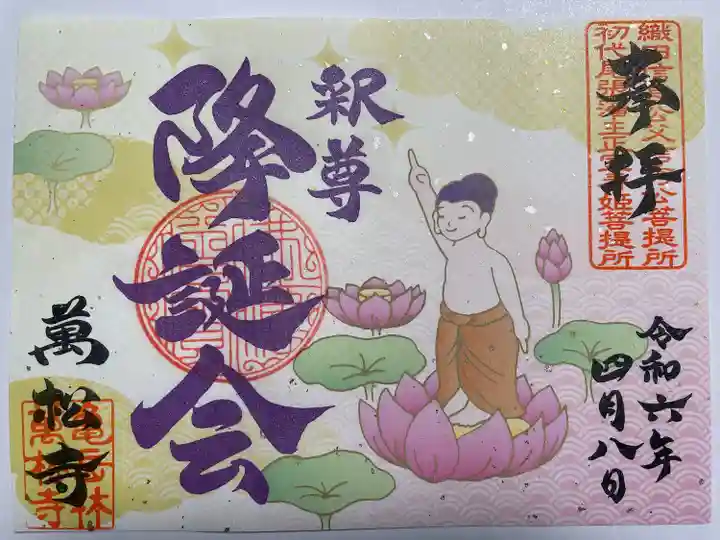 奉拝
織田信秀公菩提所
初代尾張藩主正室春姫菩提所
令和六年
四月八日
釈尊
降誕会
萬松寺
亀岳林
萬松寺